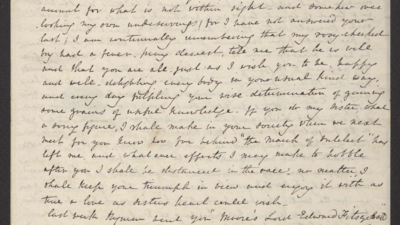 amount for what is not within sight - and somehow over
looking my own undeserving (for I have not answered your
last) I am continually remembering that my rosy cheeked
boy had a fever. pray dearest, tell me that he is well
and that you are all just as I wish you to be, happy
and well. delighting every body in your usual kind way.
and every day fulfilling your wise determination of gaining
some grains of useful knowledge. If you do my sister what
a sorry figure, I shall make in your society when we next
meet for you know how far behind "the march of intellect" has
left me and whatever efforts I may make to hobble
after you I shall be distanced in the race: no matter, I
shall keep your triumph in view and enjoy it with as
true a love as sisters heart could wish.
last week Hyman send you Moore's Lord Edward Fitzgerald